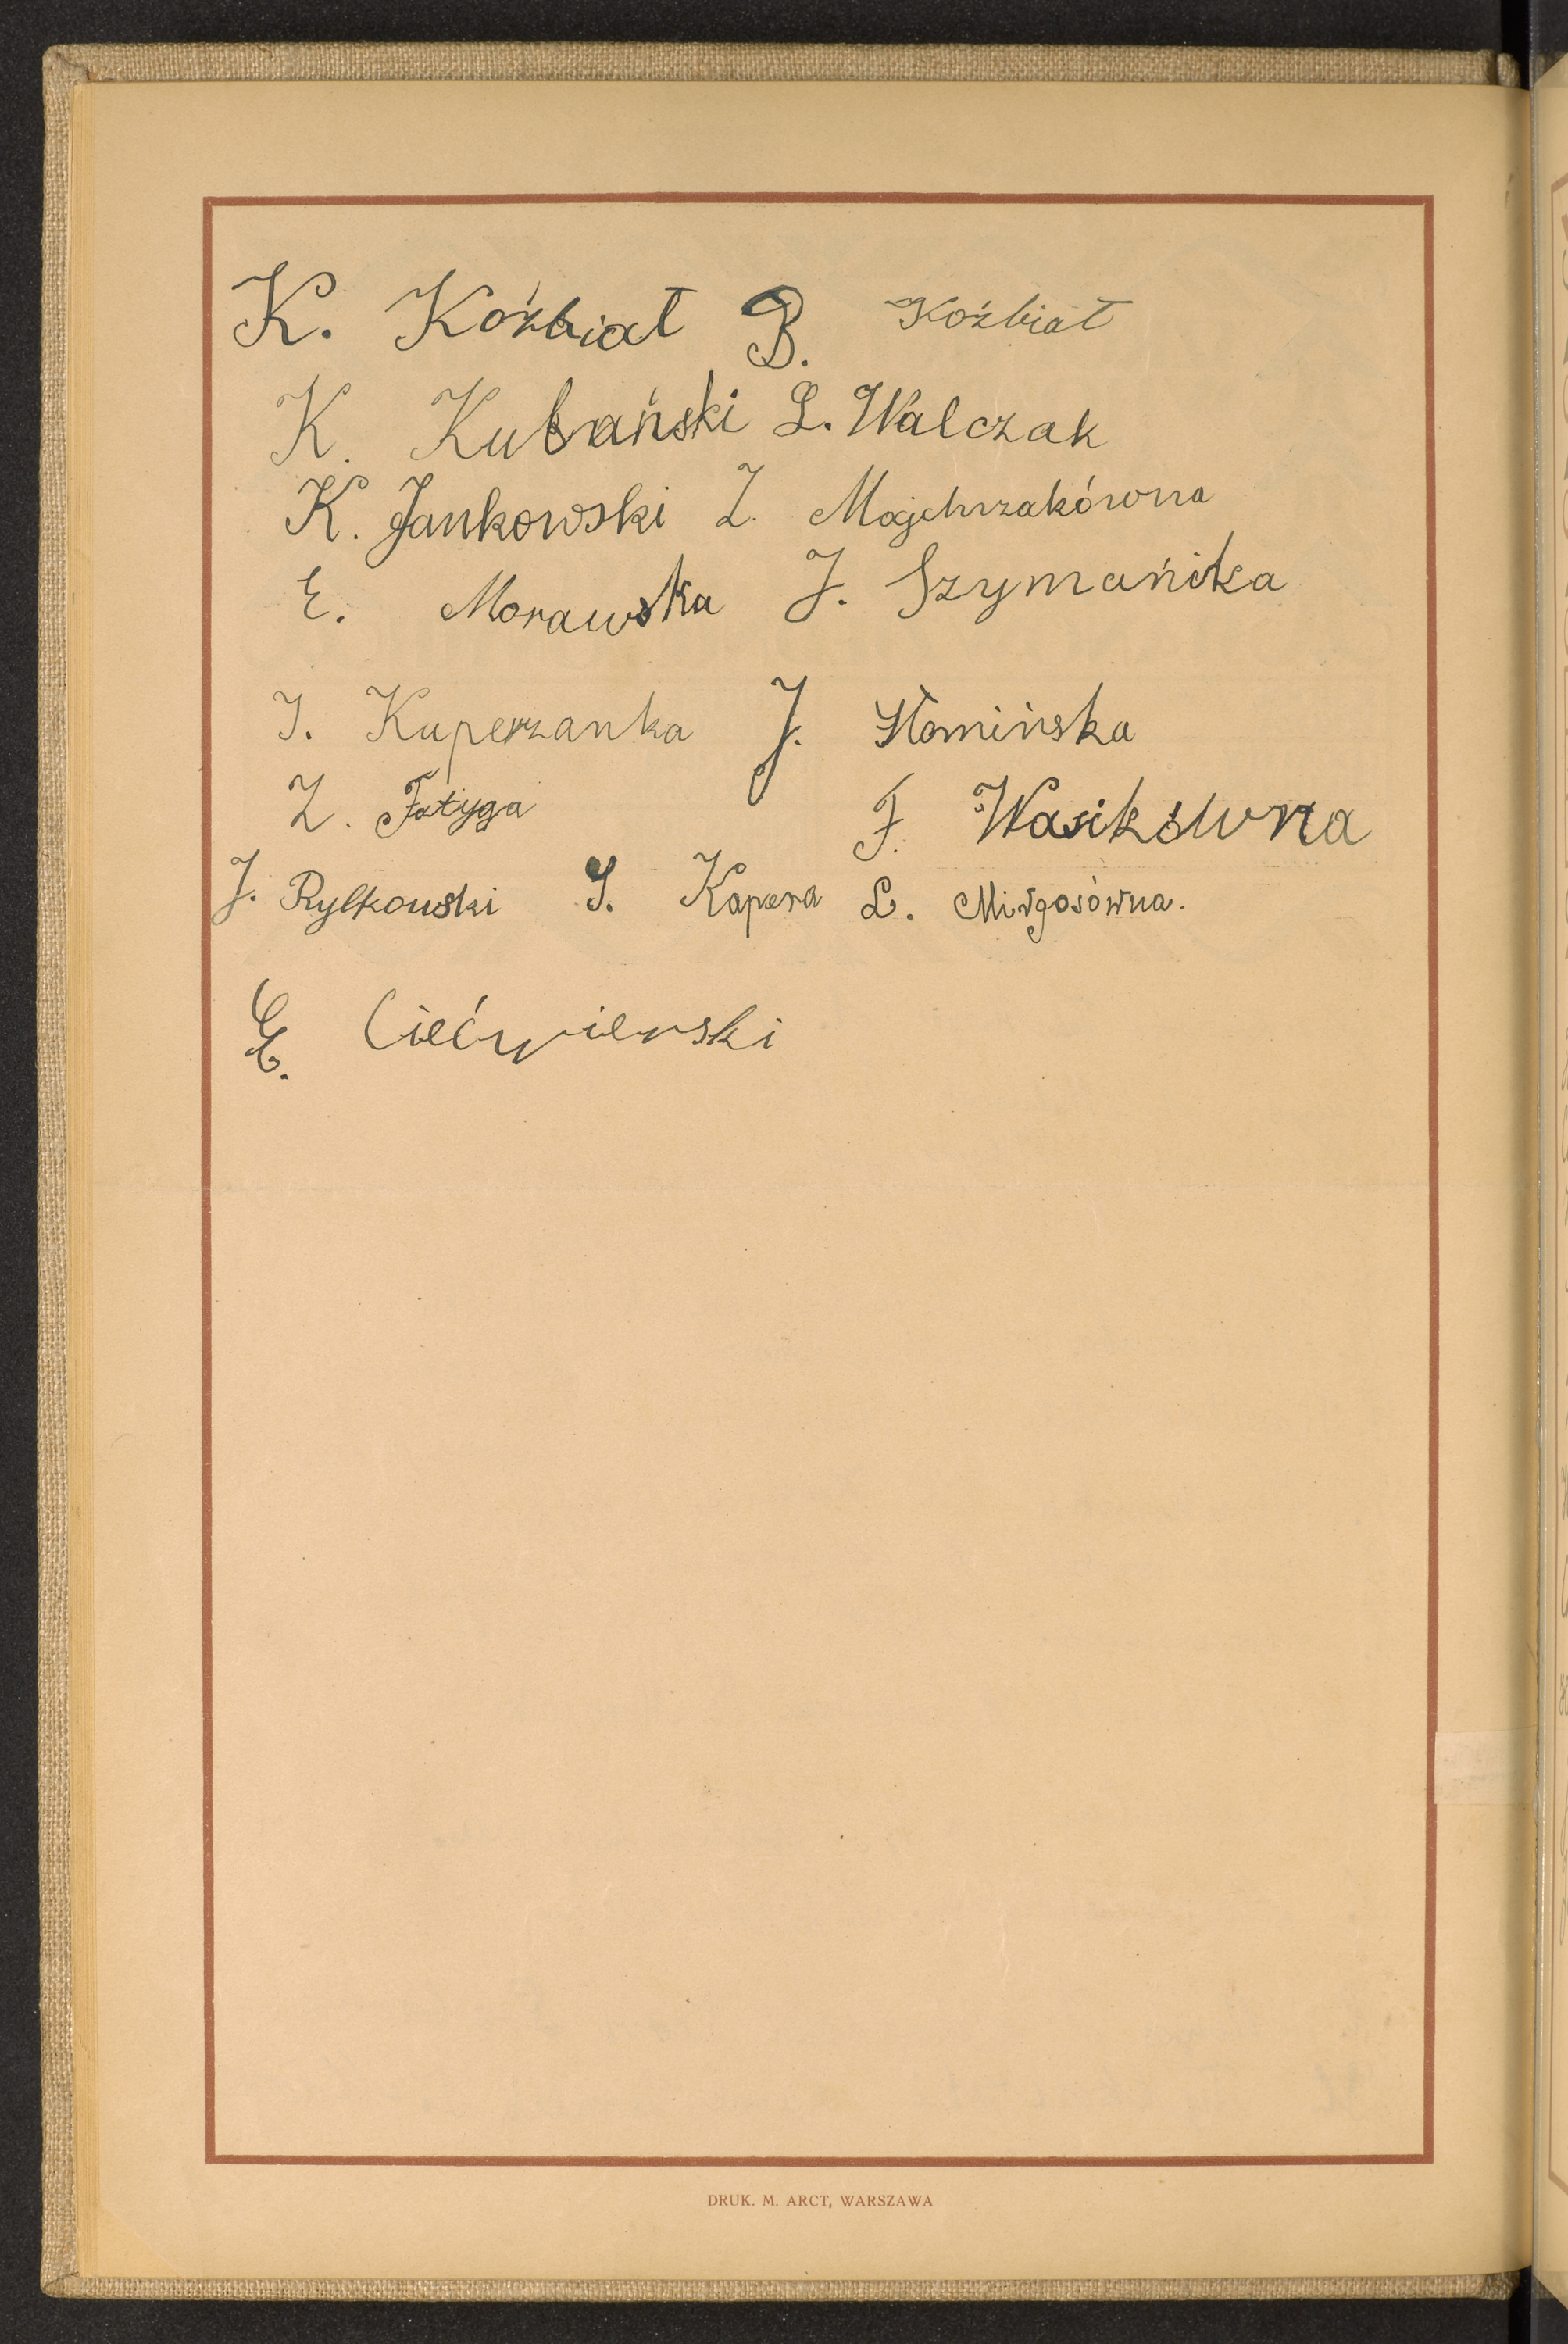 K. Koźbiał B. Koźbiał
K. Kubański L. Walczak
K. Jankowski Z. Majchrzakówna
E. Morawska J. Szymańska
I. Kuperzanka J. Słomińska
Z. Fatyga F. Wasikówna
J. Rylkowski S. Kapera L. Mirgosówna.
E. Ciećwierski
DRUK. M. ARCT, WARSZAWA